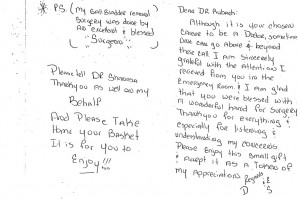 * P.S. (My Gall Bladder removal
Surgery was done by
an excellent & blessed
"Surgeon"
Please tell DR
Thankyou as well on my
Behalf
And Please Take
Home your Basket
It is for you to
Enjoy!!!
Dear DR
Although it is your chosen
career to be a Doctor, sometimes
One can go Above & beyond
their call. I am sincerely
grateful with the attention I
received from you in the
Emergency Room. & I am glad
that you were blessed with
a wonderful hand for Surgery.
Thankyou for everything &
especially for listening &
understanding my concerns
Please Enjoy this small gift
& accept it as a Token of
my Appreciation
D S